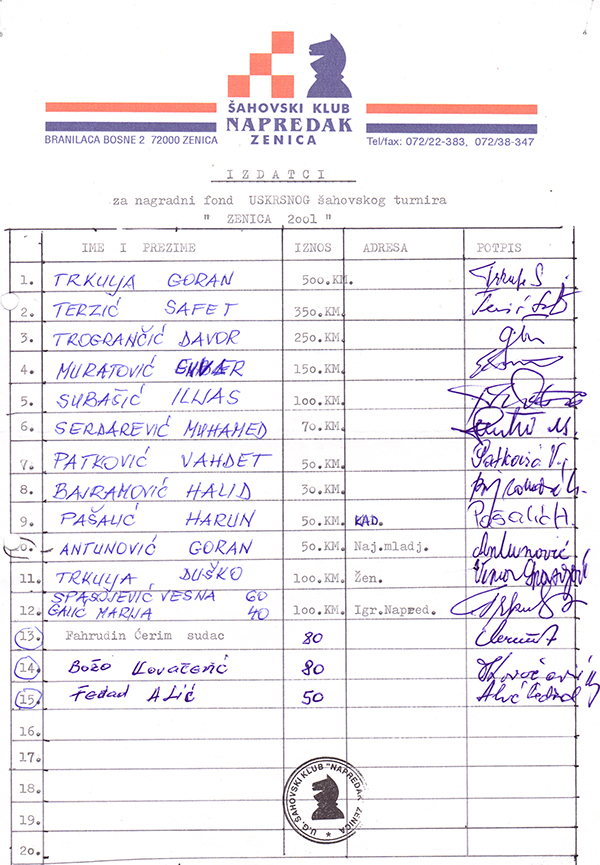 ŠAHOVSKI KLUB
NAPREDAK
ZENICA
BRANILACA BOSNE 2 72000 ZENICA
Tel/fax: 072/22-383, 072/38-347
I Z D A T C I
za nagradni fond USKRSNOG šahovskog turnira
" ZENICA 2001 "
IME I PREZIME IZNOS ADRESA POTPIS
1. TRKULJA GORAN 500.KM.
2. TERZIĆ SAFET 350.KM.
3. TROGRANČIĆ DAVOR 250.KM.
4. MURATOVIĆ 150.KM.
5. SUBAŠIĆ ILIJAS 100.KM.
6. SERDAREVIĆ MUHAMED 70.KM.
7. PATKOVIĆ VAHDET 50.KM. Patković V.
8. BAJRAMOVIĆ HALID 30.KM.
9. PAŠALIĆ HARUN 50.KM. KAD. Pašalić H.
10. ANTUNOVIĆ GORAN 50.KM. Naj.mladj. Antunović
11. TRKULJA DUŠKO 100.KM. Žen.
SPASOJEVIĆ VESNA 60
12. GALIĆ MARIJA 40 100.KM. Igr.Napred.
13. Fahrudin Ćerim sudac 80
14. Božo Kovačević 80
15. Fedad Alić 50
16.
17.
18.
19.
20.
U.G. ŠAHOVSKI KLUB "NAPREDAK" ZENICA